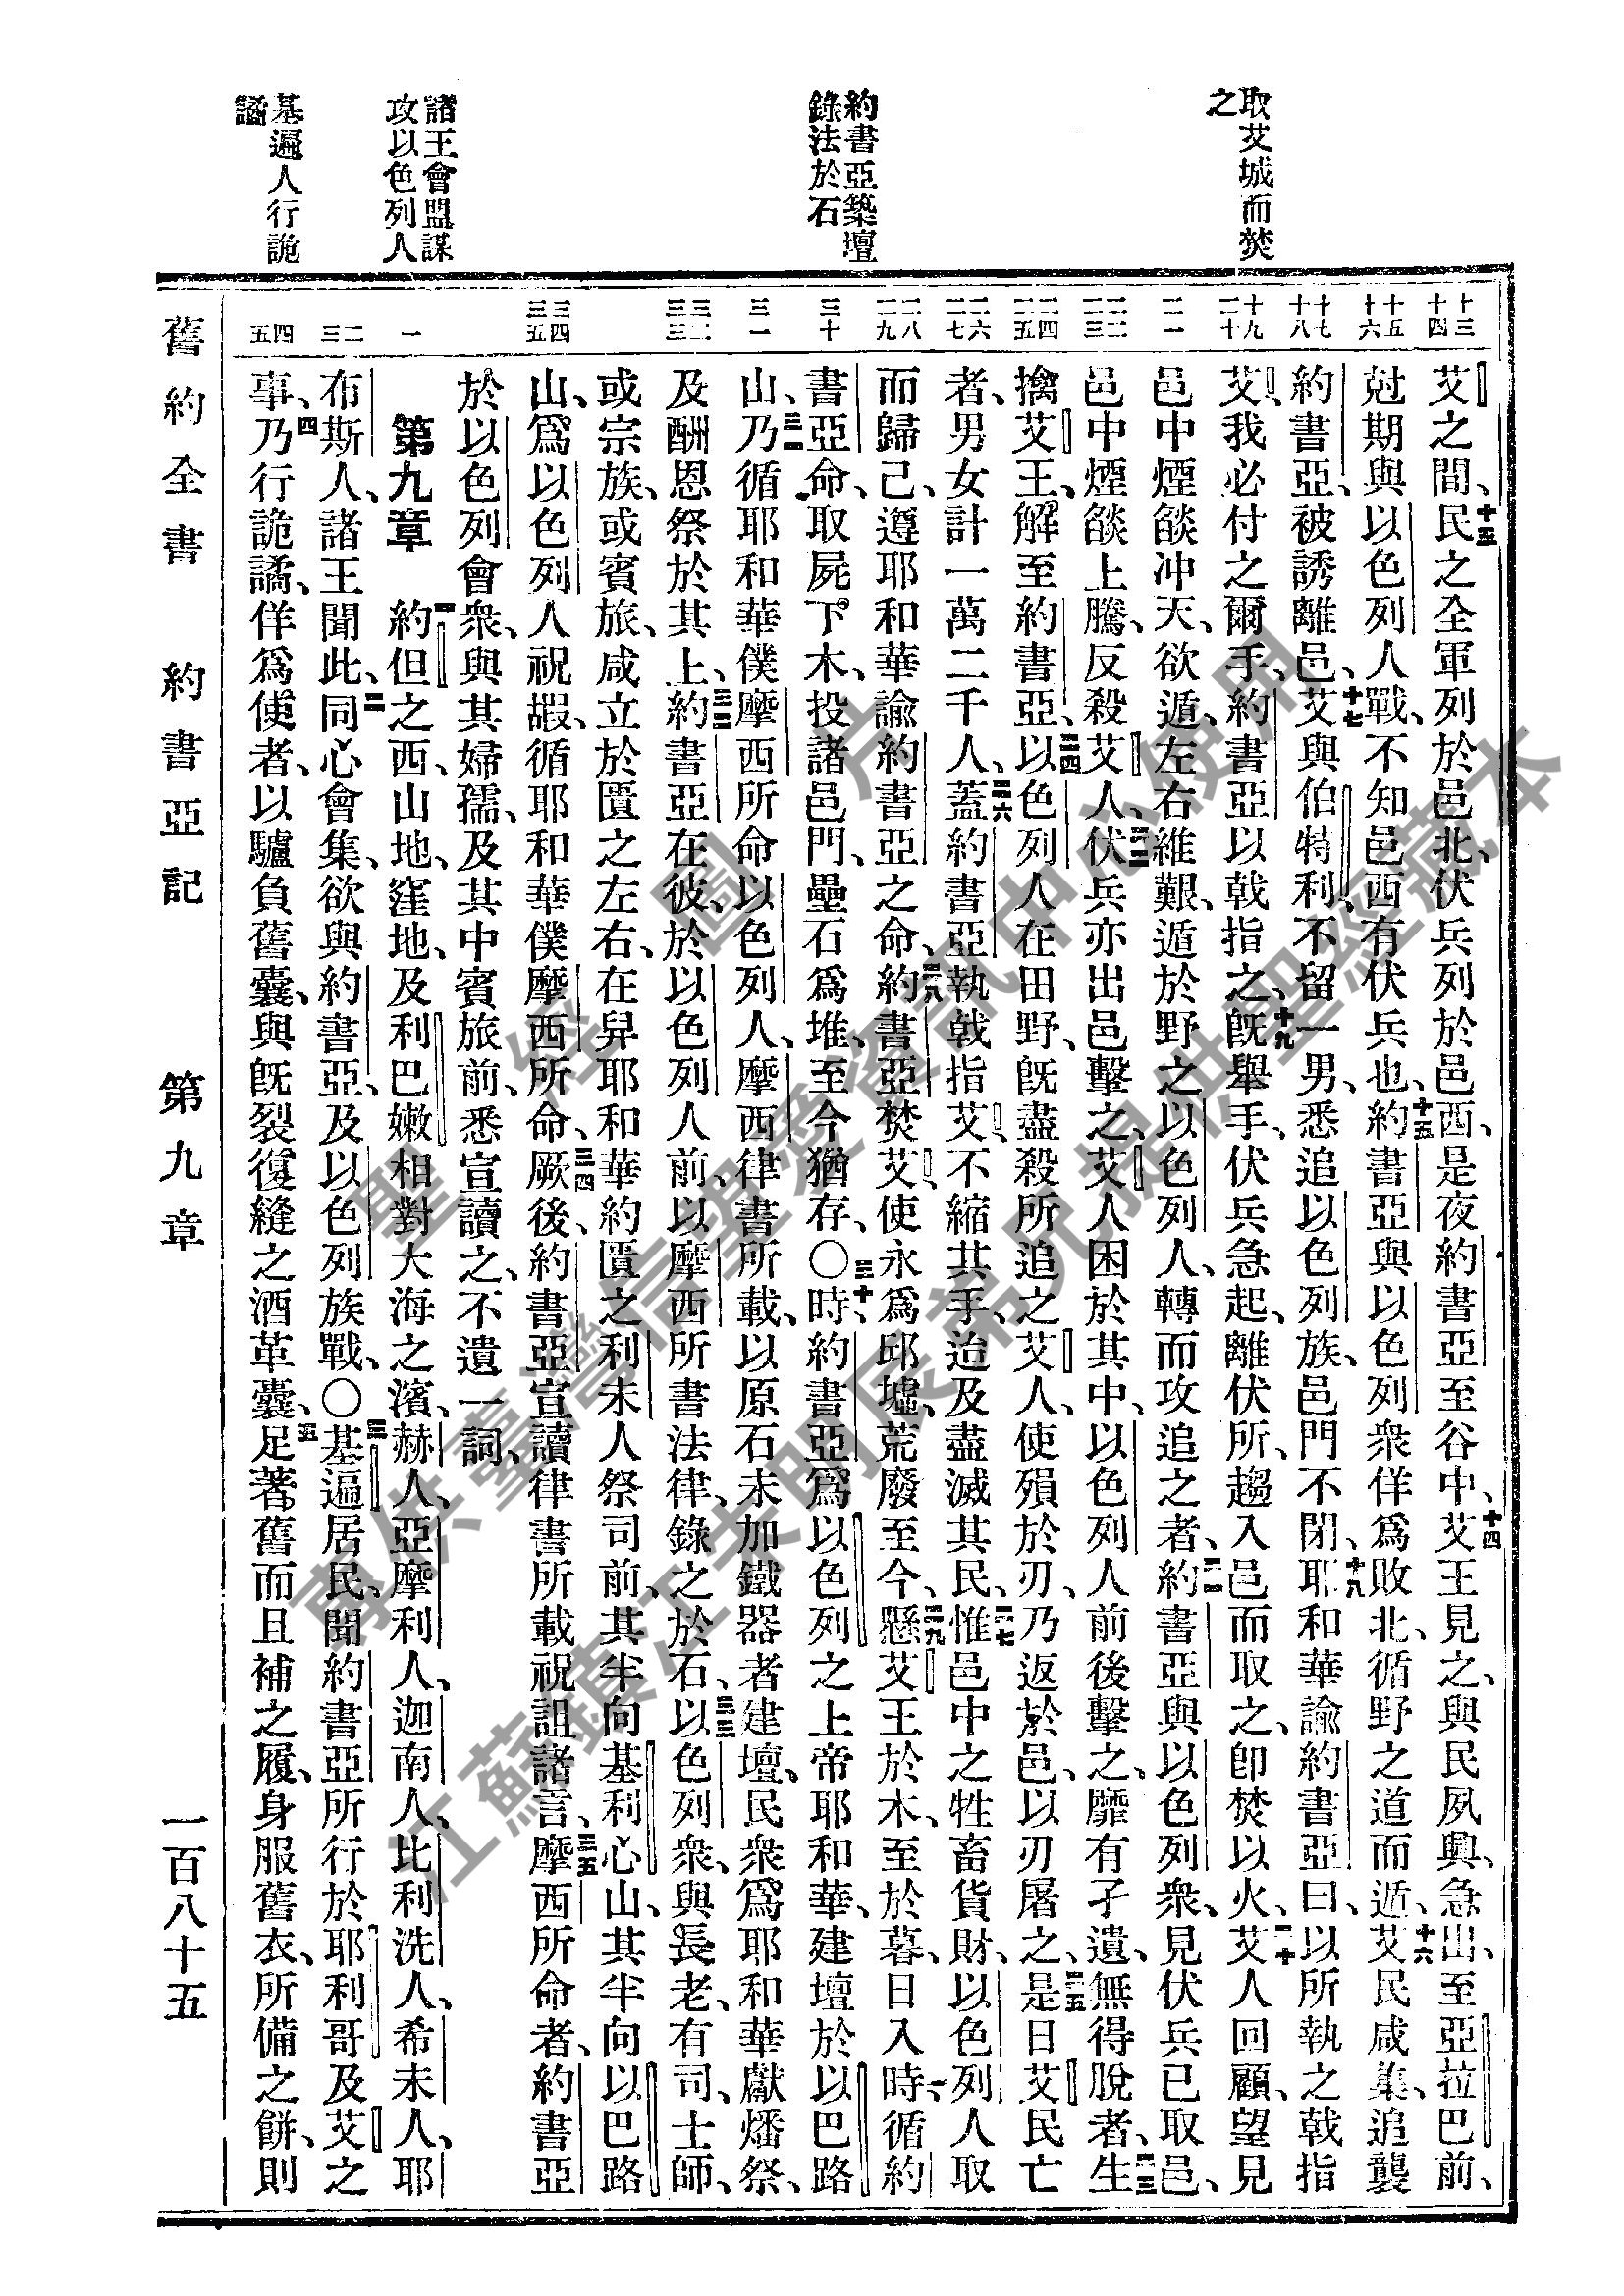 取艾城而焚
之
約書亞築壇
錄法於石
諸王會盟謀
攻以色列人
基遍人行詭
譎
十三
十四
十五
十六
十七
十八
十九
二十
二一
二二
二三
二四
二五
二六
二七
二八
二九
三十
三一
三二
三三
三四
三五
一
二
三
四
五
艾之間、十三民之全軍列於邑北、伏兵列於邑西、是夜約書亞至谷中、十四艾王見之、與民夙興、急出、至亞拉巴前、
尅期與以色列人戰、不知邑西有伏兵也、十五約書亞與以色列衆佯爲敗北、循野之道而遁、十六艾民咸集、追襲
約書亞、被誘離邑、十七艾與伯特利、不留一男、悉追以色列族、邑門不閉、十八耶和華諭約書亞曰、以所執之戟指
艾、我必付之爾手、約書亞以戟指之、十九旣舉手、伏兵急起、離伏所、趨入邑而取之、卽焚以火、二十艾人回顧、望見
邑中煙燄冲天、欲遁、左右維艱、遁於野之以色列人、轉而攻追之者、二一約書亞與以色列衆、見伏兵已取邑、
邑中煙燄上騰、反殺艾人、二二伏兵亦出邑擊之、艾人困於其中、以色列人前後擊之、靡有孑遺、無得脫者、二三生
擒艾王、解至約書亞、二四以色列人在田野、旣盡殺所追之艾人、使殞於刃、乃返於邑、以刃屠之、二五是日艾民亡
者、男女計一萬二千人、二六蓋約書亞執戟指艾、不縮其手、迨及盡滅其民、二七惟邑中之牲畜貨財、以色列人取
而歸己、遵耶和華諭約書亞之命、二八約書亞焚艾、使永爲邱墟、荒廢至今、二九懸艾王於木、至於暮、日入時、循約
書亞命、取屍下木、投諸邑門、壘石爲堆、至今猶存、○三十時、約書亞爲以色列之上帝耶和華、建壇於以巴路
山、三一乃循耶和華僕摩西所命以色列人、摩西律書所載、以原石未加鐵器者建壇、民衆爲耶和華獻燔祭、
及酬恩祭於其上、三二約書亞在彼、於以色列人前、以摩西所書法律、錄之於石、三三以色列衆、與長老、有司、士師、
或宗族、或賓旅、咸立於匱之左右、在舁耶和華約匱之利未人祭司前、其半向基利心山、其半向以巴路
山、爲以色列人祝嘏、循耶和華僕摩西所命、三四厥後、約書亞宣讀律書所載祝詛諸言、三五摩西所命者、約書亞
於以色列會衆、與其婦孺、及其中賓旅前、悉宣讀之、不遺一詞、
第九章　一約但之西、山地、窪地、及利巴嫩相對大海之濱、赫人、亞摩利人、迦南人、比利洗人、希未人、耶
布斯人、諸王聞此、二同心會集、欲與約書亞、及以色列族戰、○三基遍居民、聞約書亞所行於耶利哥及艾之
事、四乃行詭譎、佯爲使者、以驢負舊囊、與旣裂復縫之酒革囊、五足著舊而且補之履、身服舊衣、所備之餅、則
舊約全書　約書亞記　第九章　一百八十五
聖經圖片
專供臺灣信望愛資訊中心使用
江蘇鎮江朱明辰弟兄提供聖經藏本